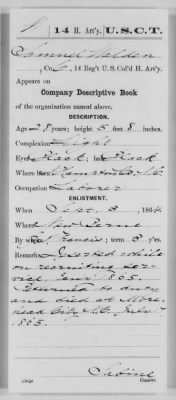 W | 14 H. Art'y. | U.S.C.T.
Samuel Walden
, Co. C, 14 Reg't U. S. Col'd H. Art'y.
Appears on
Company Descriptive Book
of the organization named above.
DESCRIPTION.
Age 28 years; height 5 feet 8 inches.
Complexion Light
Eyes Black; hair Black
Where born Hampton Co. N.C.
Occupation Laborer
ENLISTMENT.
When Sept. 3, 1864.
Where New Berne
By whom Francis; term 3 y'rs.
Remarks: Deserted while
on recruiting ser-
vice, Jan'y, 1865.
Returned to duty
and died at More-
head City N.C. July
1865.
Sabine
Copyist.